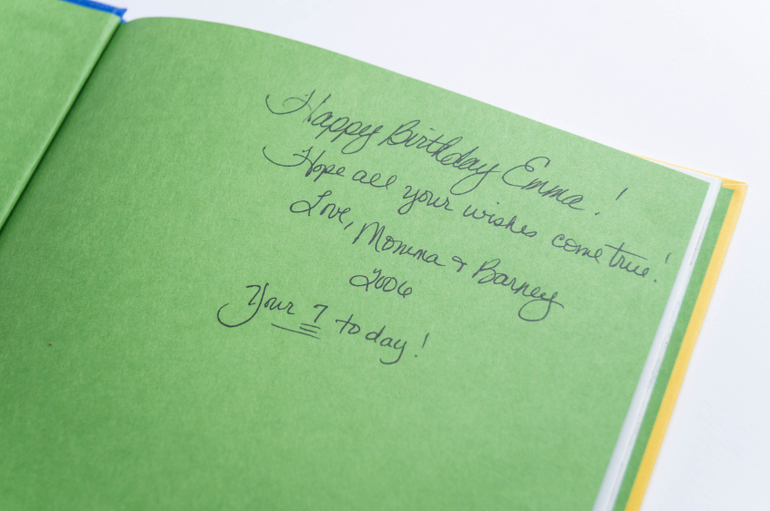 Happy Birthday Emma!
Hope all your wishes come true!
Love, Momma & Barney
2006
Your 7 today!